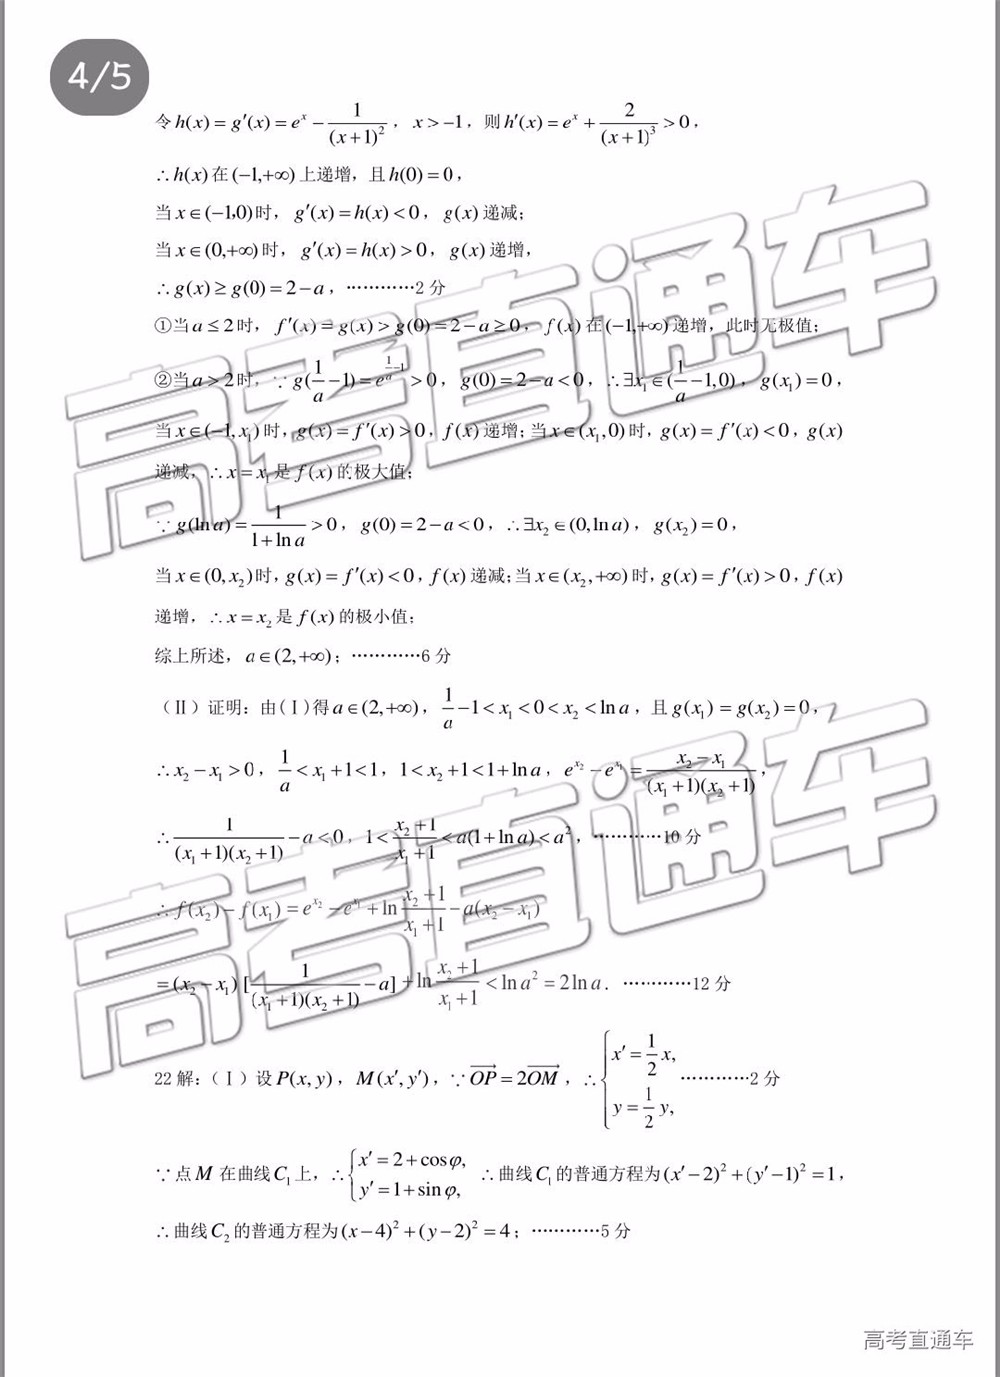 4/5
令h(x)=g′(x)=e^x-1/(x+1)^2，x>-1，则h′(x)=e^x+2/(x+1)^3>0，
∴h(x)在(-1,+∞)上递增，且h(0)=0，
当x∈(-1,0)时，g′(x)=h(x)<0，g(x)递减；
当x∈(0,+∞)时，g′(x)=h(x)>0，g(x)递增，
∴g(x)≥g(0)=2-a，…………2分
①当a≤2时，f′(x)=g(x)>g(0)=2-a≥0，f(x)在(-1,+∞)递增，此时无极值；
②当a>2时，∵g(1/a-1)=e^(1/a-1)>0，g(0)=2-a<0，∴∃x₁∈(1/a-1,0)，g(x₁)=0，
当x∈(-1,x₁)时，g(x)=f′(x)>0，f(x)递增；当x∈(x₁,0)时，g(x)=f′(x)<0，g(x)
递减，∴x=x₁是f(x)的极大值；
∵g(ln a)=1/(1+ln a)>0，g(0)=2-a<0，∴∃x₂∈(0,ln a)，g(x₂)=0，
当x∈(0,x₂)时，g(x)=f′(x)<0，f(x)递减；当x∈(x₂,+∞)时，g(x)=f′(x)>0，f(x)
递增，∴x=x₂是f(x)的极小值；
综上所述，a∈(2,+∞)；…………6分
（Ⅱ）证明：由(Ⅰ)得a∈(2,+∞)，1/a-1<x₁<0<x₂<ln a，且g(x₁)=g(x₂)=0，
∴x₂-x₁>0，1/a<x₁+1<1，1<x₂+1<1+ln a，e^(x₂)-e^(x₁)=(x₂-x₁)/((x₁+1)(x₂+1))，
∴1/((x₁+1)(x₂+1))-a<0，1<(x₂+1)/(x₁+1)<a(1+ln a)<a^2，…………10分
∴f(x₂)-f(x₁)=e^(x₂)-e^(x₁)+ln (x₂+1)/(x₁+1)-a(x₂-x₁)
=(x₂-x₁)[1/((x₁+1)(x₂+1))-a]+ln (x₂+1)/(x₁+1)<ln a^2=2ln a．…………12分
22解：(Ⅰ)设P(x,y)，M(x′,y′)，∵OP=2OM，∴{x′=1/2 x, y=1/2 y, …………2分
∵点M在曲线C₁上，∴{x′=2+cosφ, y′=1+sinφ, ∴曲线C₁的普通方程为(x′-2)^2+(y′-1)^2=1，
∴曲线C₂的普通方程为(x-4)^2+(y-2)^2=4；…………5分
高考直通车
高考直通车
高考直通车